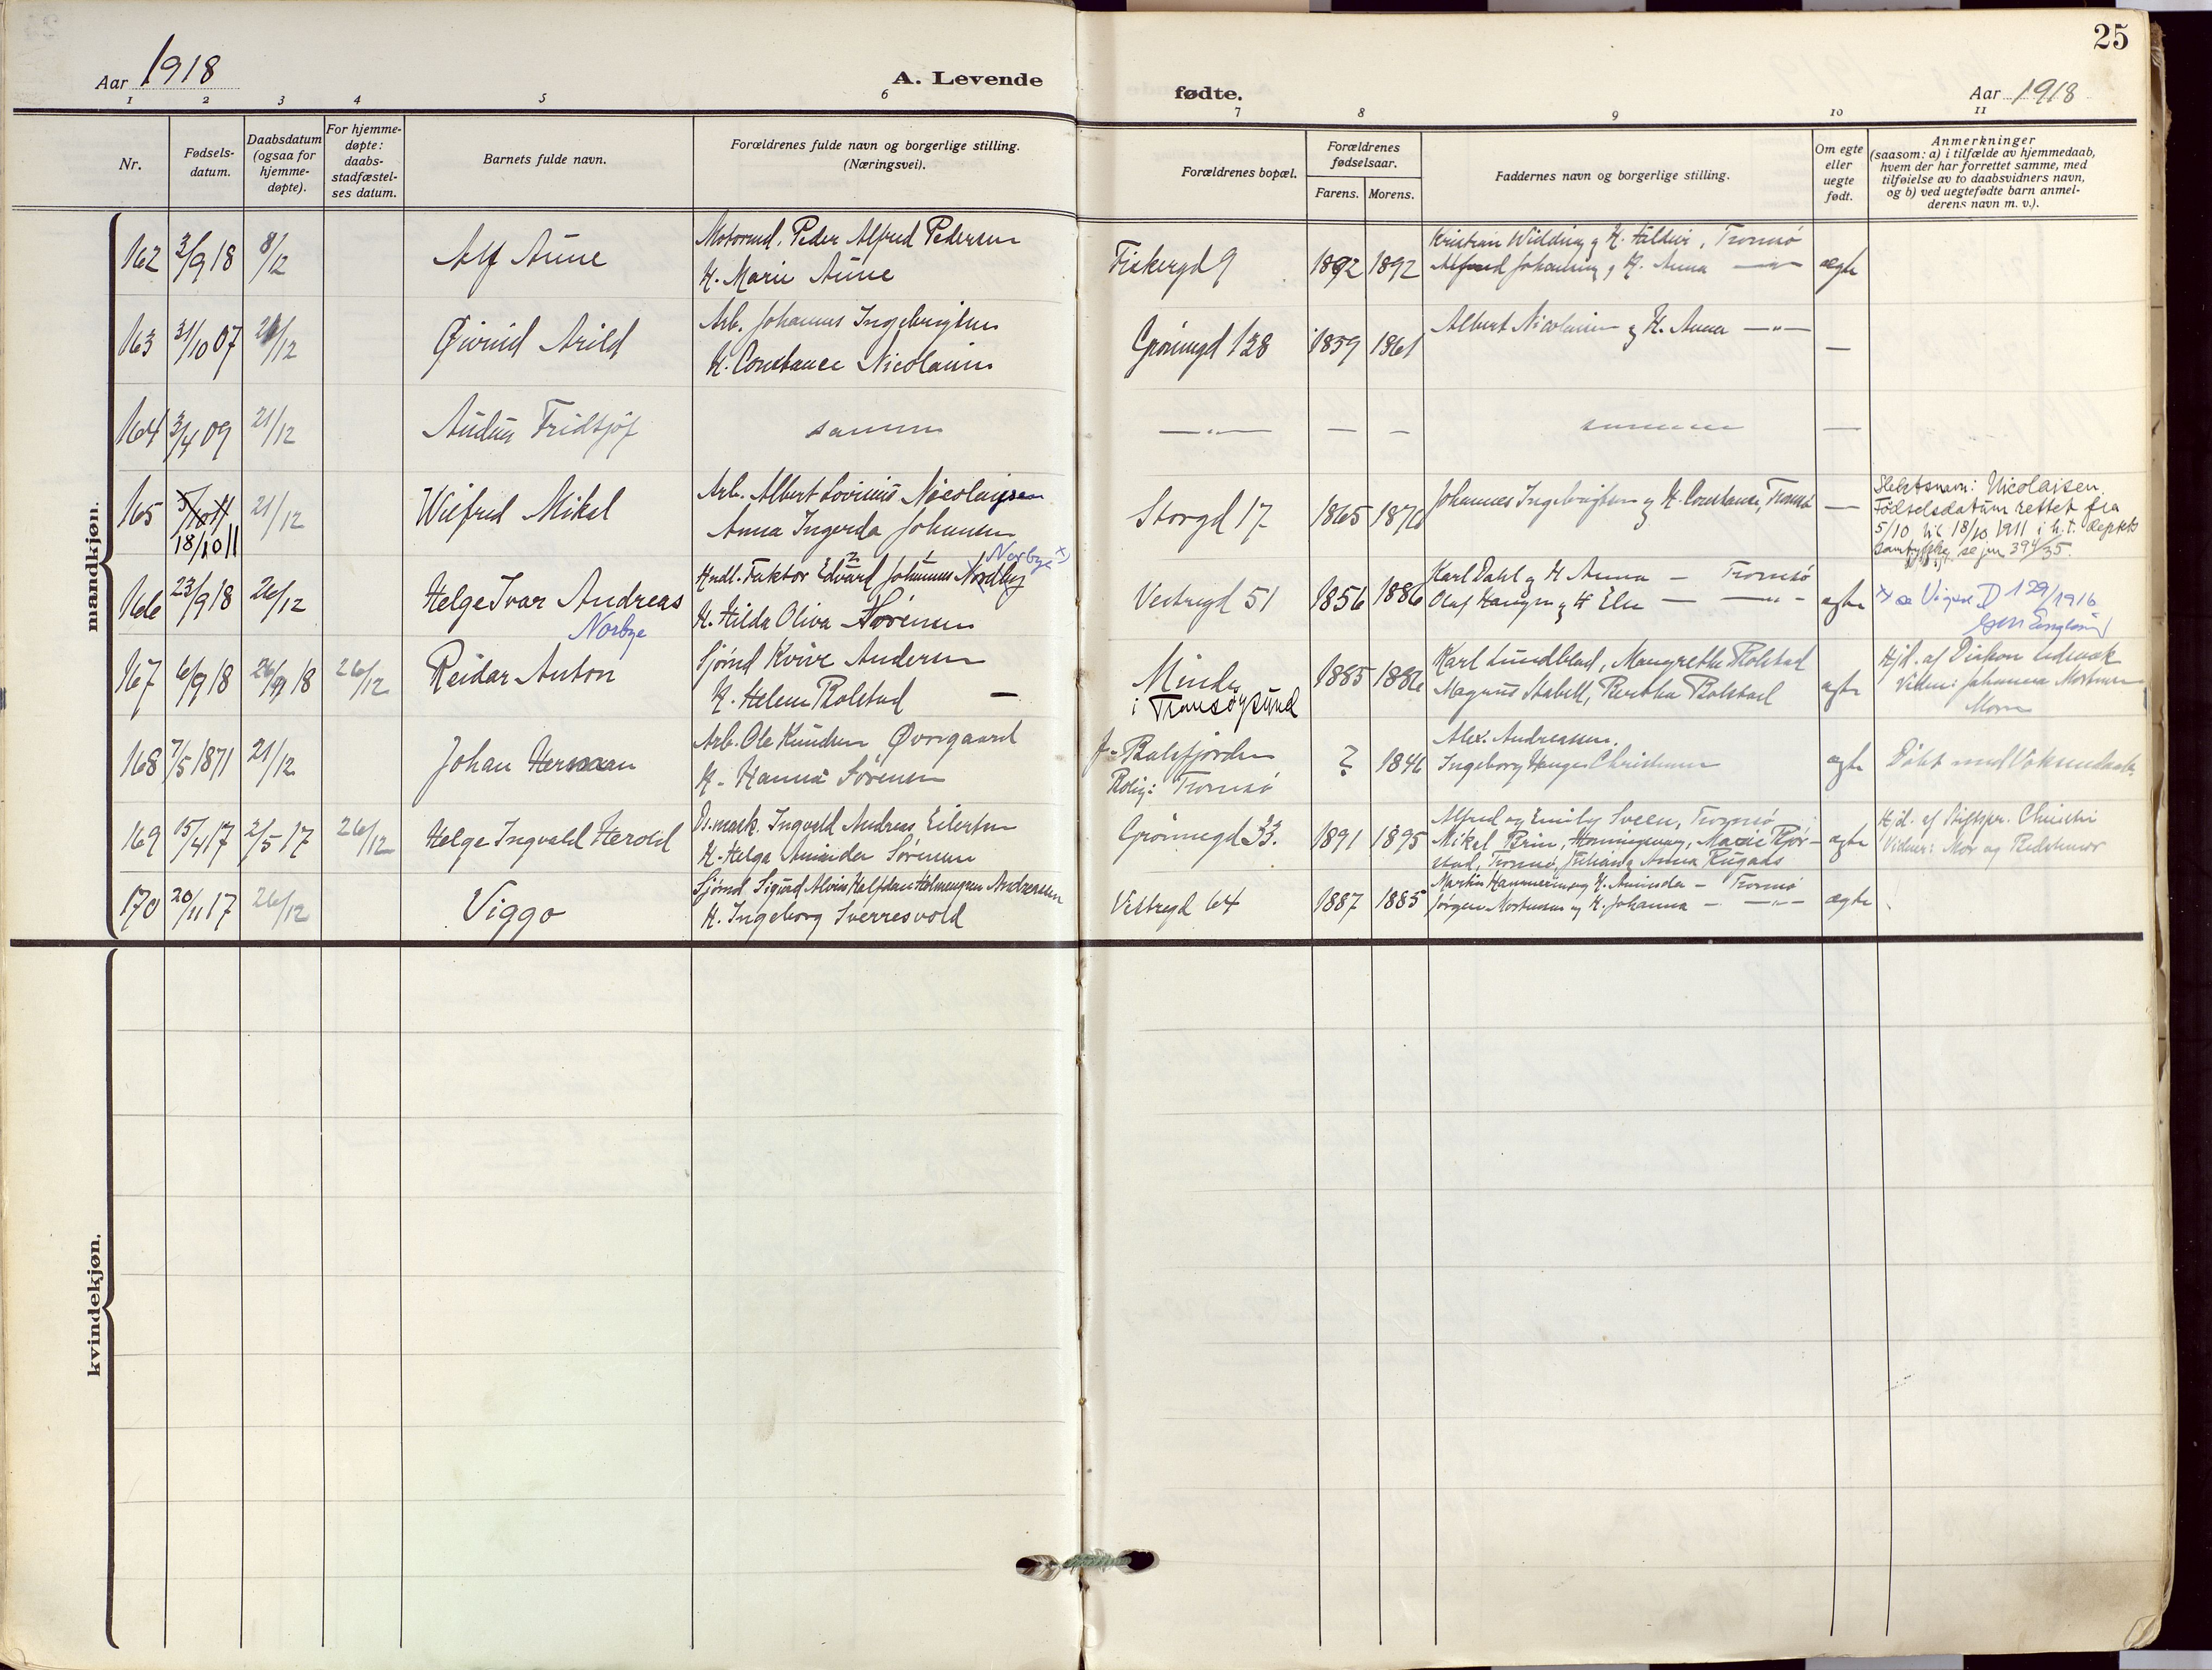 25
Aar 1918
A. Levende
fødte.
Aar 1918
1 2 3 4 5 6 7 8 9 10 11
Nr.
Fødsels-
datum.
Daabsdatum
(ogsaa for
hjemme-
døpte).
For hjemme-
døpte:
daabs-
stadfæstel-
ses datum.
Barnets fulde navn.
Forældrenes fulde navn og borgerlige stilling.
(Næringsvei).
Forældrenes bopæl.
Forældrenes
fødselsaar.
Farens. Morens.
Faddernes navn og borgerlige stilling.
Om egte
eller
uegte
født.
Anmerkninger
(saasom: a) i tilfælde av hjemmedaab,
hvem der har forrettet samme, med
tilføielse av to daabsvidners navn,
og b) ved uegtefødte barn anmel-
derens navn m. v.).
mandkjøn.
162 3/9 18 8/12 Alf Aune
Motormd. Peder Alfred Pedersen
H. Marie Aune
1892 1892
Tromsø
Alfred Johansen og H. Anna —"—
ægte
163 31/10 07 21/12 Øivind Arild
Arb. Johannes Ingebrigtsen
H. Constance Nicolaisen
Grønnegd 128 1859 1861
Albert Nicolaisen og H. Anna —"—
—
164 3/4 09 21/12 Fridtjof
samme
—"— — — samme —
165 5/10 11 21/12 Wilfred Mikal
18/10 11
Arb. Albert Nicolaysen
Anna Ingerda Johansen
Storgd 17 1865 1876
Johannes Ingebrigtsen og H. Constance, Tromsø
—
Slektsnavn: Nicolaisen
Fødselsdatum rettet fra
5/10 til 18/10 1911 i h.t. deptets
samtykke, se jnr 394/35.
166 23/9 18 26/12 Helge Ivar Andreas
Norbye
Hndl. Faktor Edvard Johannes Nordby Norbye x)
H. Hilda Oliva Sørensen
Vestregd 51 1856 1886
Karl Dahl og H Anna — Tromsø
Olaf Haugen og H Else — —"—
ægte
129/1916
167 6/9 18 26/9 18 26/12 Reidar Anton
Sjømd Andersen
H. Helene Bolstad —
Minde
i Tromsøysund
1885 1886
Karl Lundblad, Margrethe Bolstad
Magnus Stabell, Bertha Bolstad
ægte
Hjd. af Diakon
Vidner: Johanna Mortensen
Moren
168 7/5 1871 21/12 Johan Herman
Arb. Ole Knudsen Øvergaard
H. Hanna Sørensen
f. Balsfjorden
Bolig: Tromsø
? 1846
Alex. Andreassen.
Ingeborg Hauger Christensen
ægte
Døbt med Voksendaab.
169 15/4 17 2/5 17 26/12 Helge Ingvald Herold
Ingvald Andreas Eilertsen
H. Helga Aminda Sørensen
Grønnegd 33. 1891 1895
Alfred og Emily Sveen, Tromsø
Mikal Brun, Honningsvaag, Marie Kjør-
stad, Tromsø, Anna Rugaas
ægte
Hjd. af Stiftspr. Christie
Vidner: Mor og Bedstemor
170 20/11 17 26/12 Viggo
Sjømd Sigurd Alvin Halfdan Holmengren Andreassen
H. Ingeborg Sverresvold
Vestregd 64 1887 1885
Martin Hammering og H. Aminda — Tromsø
Jørgen Mortensen og H. Johanna — —"—
ægte
kvindekjøn.